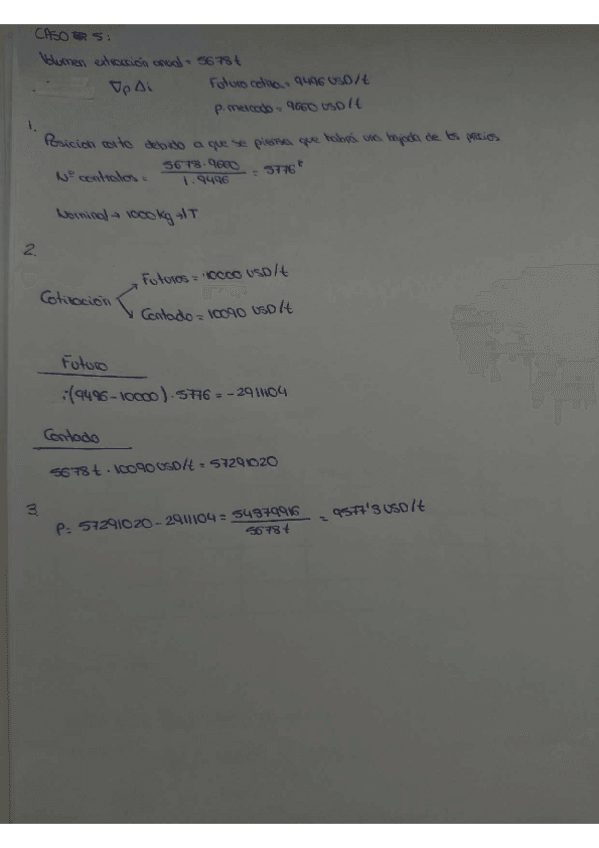 CASO 5:
Volumen extracción anual = 5678 t
∇p Δi Futuro cotiza = 9496 USD/t
p. mercado = 9660 USD/t
1.
Posición corta debido a que se piensa que habrá una bajada de los precios.
Nº contratos = 5678·9660 / 1·9496 = 5776
Nominal → 1000 Kg → 1T
2.
Futuros = 10000 USD/t
Cotización
Contado = 10090 USD/t
Futuro
(9496-10000)·5776 = -2911104
Contado
5678 t · 10090 USD/t = 57291020
3.
P = 57291020 - 2911104 = 54379916 / 5678 t = 9577'3 USD/t